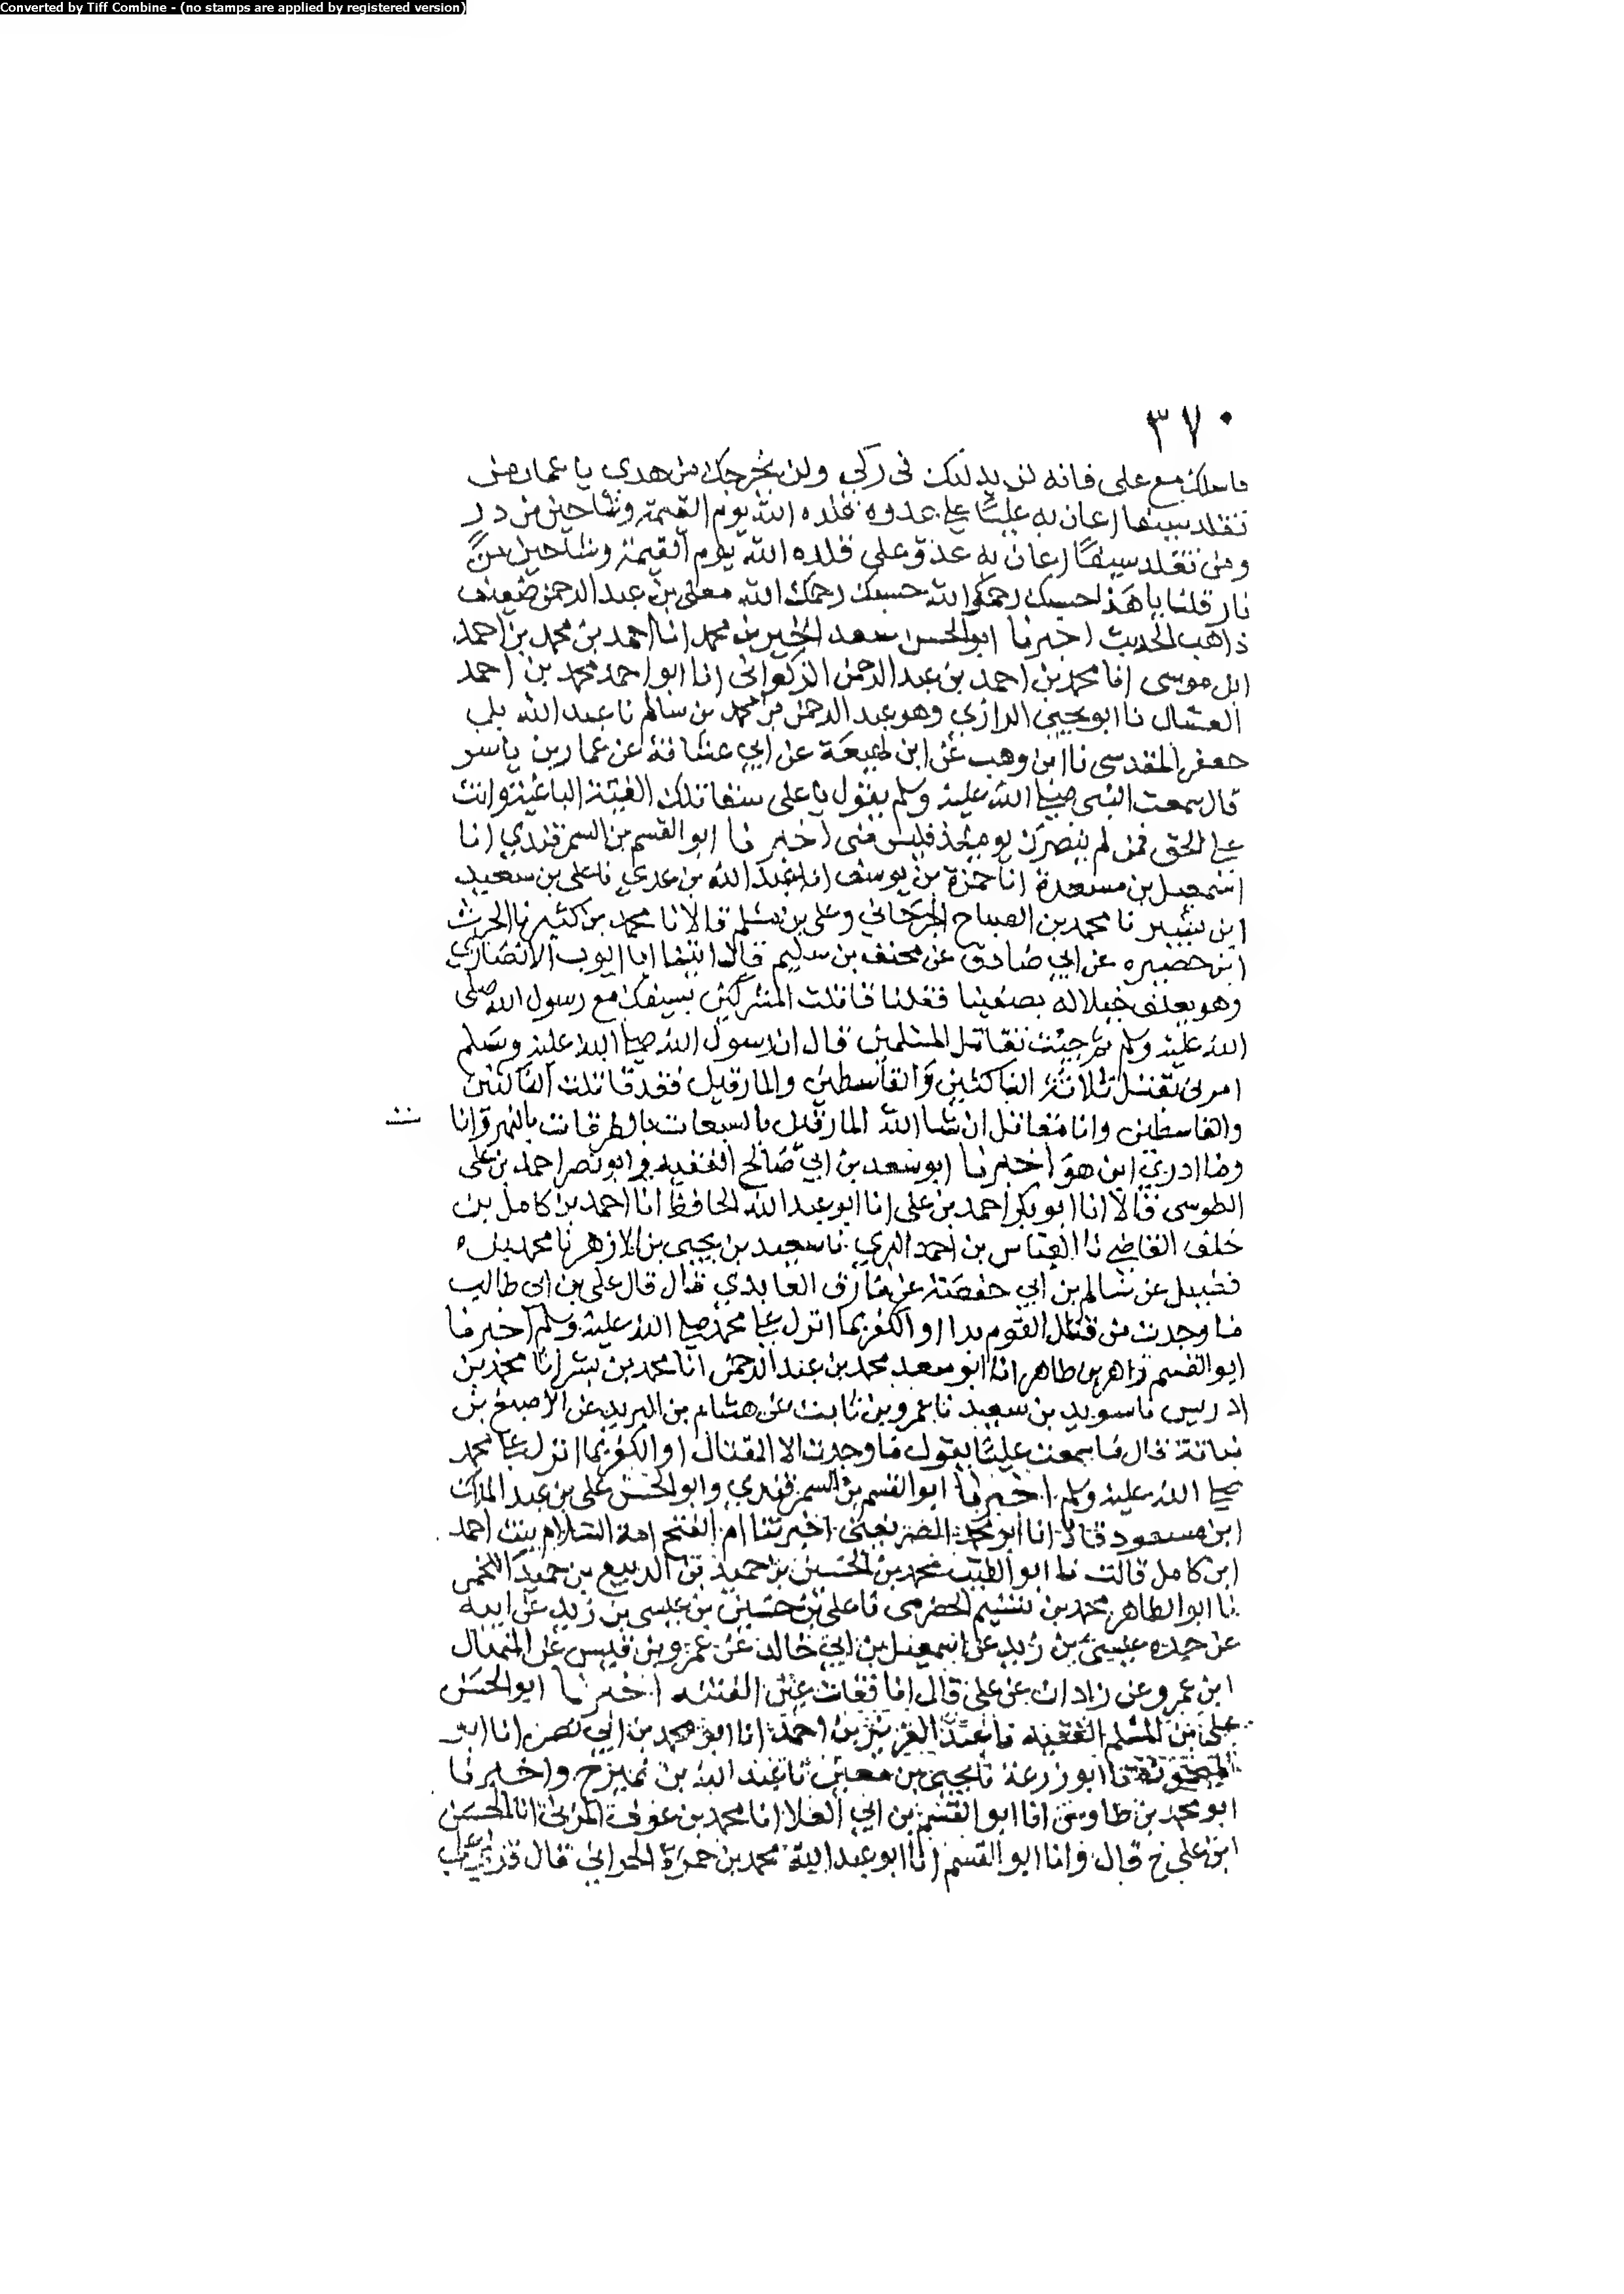 Converted by Tiff Combine - (no stamps are applied by registered version)
٣٧٠
فاسلك مع على فانه لن يدليك فى ركى ولن يخرجك من هدى يا عمار من
تقلد سيفا اعان به عليًا على عدوه قلده الله يوم القيمة وشاحين من در
ومن تقلد سيفًا اعان به عدو على قلده الله يوم القيمة وشاحين من
نار قلنا يا هذا حسبك رحمك الله حسبك رحمك الله معلى بن عبد الرحمن ضعيف
ذاهب الحديث اخبرنا ابو الحسن سعد الخير بن محمد انا احمد بن محمد بن احمد
ابن موسى انا محمد بن احمد بن عبد الرحمن الذكوانى انا ابو احمد محمد بن احمد
العسال نا ابو يحيى الرازي وهو عبد الرحمن بن محمد بن سالم نا عبد الله بن
جعفر المقدسى نا ابن وهب عن ابن لهيعة عن ابي عشانة عن عمار بن ياسر
قال سمعت النبى صلى الله عليه وسلم يقول يا على ستقاتلك الفئة الباغية وانت
على الحق فمن لم ينصرك يومئذ فليس منى اخبرنا ابو القسم بن السمرقندي انا
اسمعيل بن مسعدة انا حمزة بن يوسف انا عبد الله بن عدي نا على بن سعيد
ابن بشير نا محمد بن الصباح الجرجاني وعلى بن مسلم قالا نا محمد بن كثير نا الحرث
ابن حصيره عن ابي صادق عن مخنف بن سليم قال اتينا ابا ايوب الانصاري
وهو يعلف خيلا له بصفينا فقلنا قاتلت المشركين بسيفك مع رسول الله صلى
الله عليه وسلم ثم جئت تقاتل المسلمين قال ان رسول الله صلى الله عليه وسلم
امرنى بقتل ثلاثة الناكثين والقاسطين والمارقين فقد قاتلت الناكثين
والقاسطين وانا مقاتل ان شا الله المارقين بالسعفات بالطرقات بالنهروانا
وما ادري اين هو اخبرنا ابو سعد بن ابي صالح الفقيه وابو نصر احمد بن على
الطوسى قالا انا ابو بكر احمد بن على انا ابو عبد الله الحافظ انا احمد بن كامل بن
خلف القاضي نا العباس بن احمد البري نا سعيد بن يحيى بن الازهر نا محمد بن
فضيل عن سالم بن ابي حفصة عن مازن العابدي قال قال على بن ابى طالب
ما وجدت من قتال القوم بدا او الكفر بما انزل على محمد صلى الله عليه وسلم اخبرنا
ابو القسم زاهر بن طاهر انا ابو سعد محمد بن عبد الرحمن انا محمد بن بشر انا محمد بن
ادريس نا سويد بن سعيد نا عمرو بن ثابت عن هشام بن البريد عن الاصبغ بن
نباتة قال ما سمعت عليًا يقول ما وجدت الا القتال او الكفر بما انزل على محمد
صلى الله عليه وسلم اخبرنا ابو القسم بن السمرقندي وابو الحسن على بن عبد الملك
ابن مسعود قالا انا ابو محمد الصريفينى اخبرتنا ام الفتح امة السلام بنت احمد
ابن كامل قالت نا ابو الطيب محمد بن الحسين بن حميد بن الربيع بن حميد اللخمى
نا ابو الطاهر محمد بن تسنيم الحضرمى نا على بن حسين بن عيسى بن زيد عن ابيه
عن جده عيسى بن زيد عن اسمعيل بن ابي خالد عن عمرو بن قيس عن المنهال
ابن عمرو عن زاذان عن على قال انا فقات عين الفتنه اخبرنا ابو الحسن
على بن المسلم الفقيه نا عبد العزيز بن احمد انا ابو محمد بن ابي نصر انا ابو
الميمون نا ابو زرعة نا يحيى بن معين نا عبد الله بن نمير ح واخبرنا
ابو محمد بن طاوس انا ابو القسم بن ابي العلا انا محمد بن عوف المزنى انا الحسن
ابن على ح قال وانا ابو القسم انا ابو عبد الله محمد بن حمزة الحراني قال قرئ على